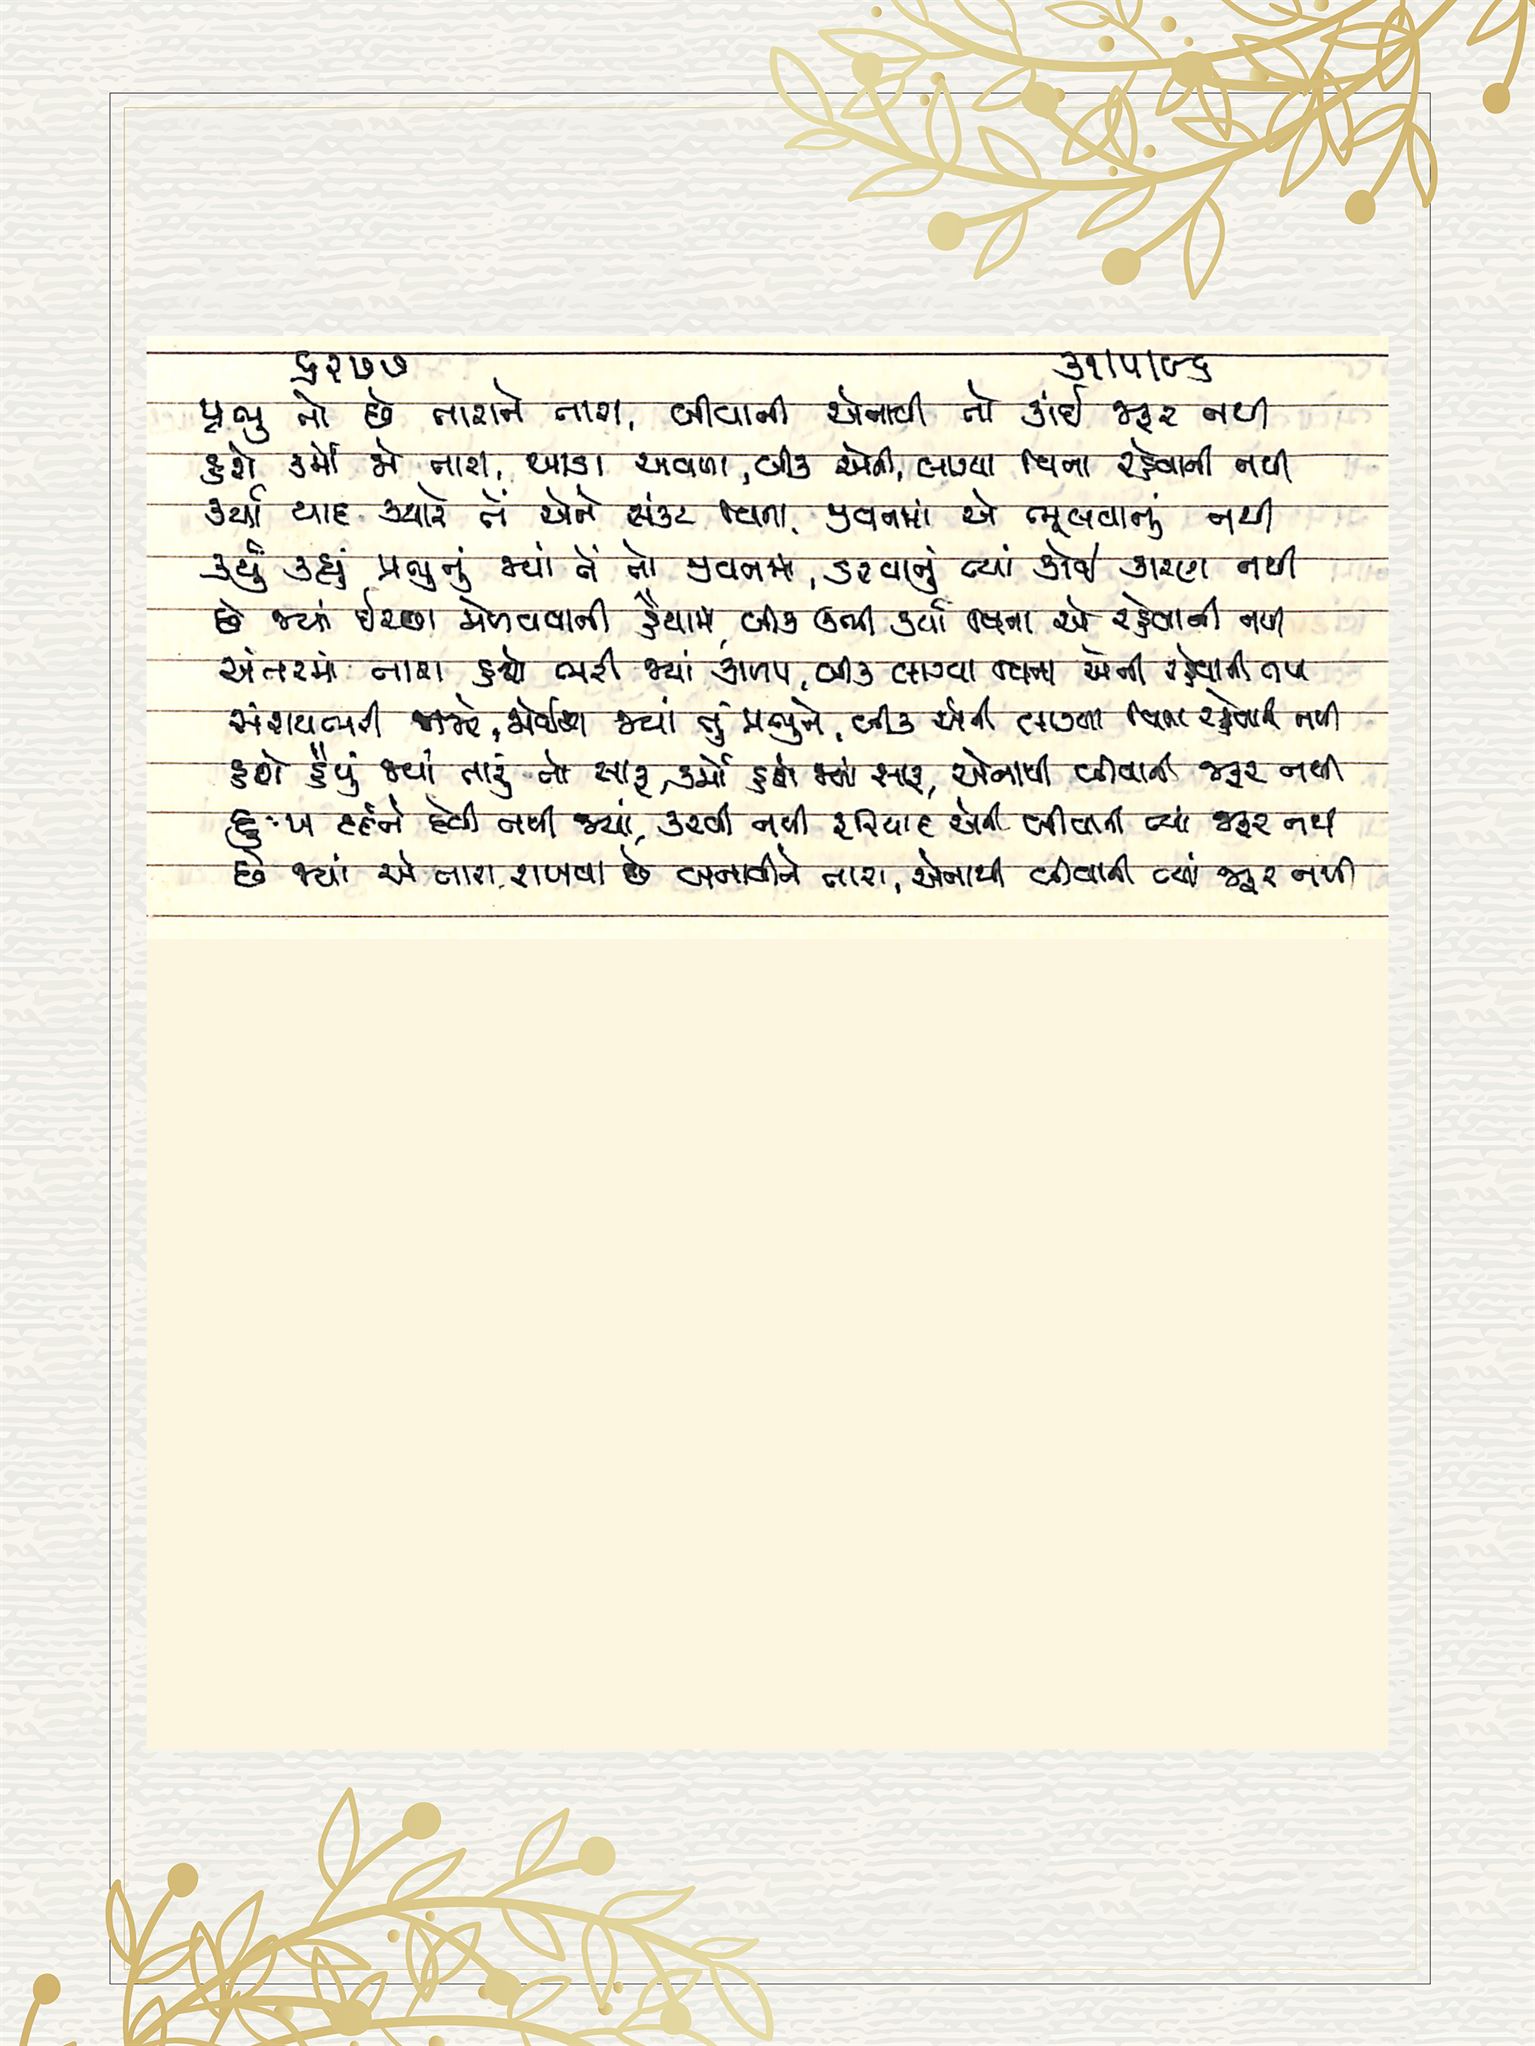 ૬૨૭૭ ૩૧।૫।૯૬
પ્રભુ તો છે તારાને તારા, બીવાની એનાથી તો કાંઈ જરૂર નથી
હશે કર્મો જો તારા, આડા અવળા, બીક એની, લાગ્યા વિના રહેવાની નથી
કર્યા યાદ ક્યારે તેં એને સંકટ વિના, જીવનમાં એ ભૂલવાનું નથી
કર્યું કહ્યું પ્રભુનું જ્યાં તેં તો જીવનમાં, ડરવાનું ત્યાં કોઈ કારણ નથી
છે જ્યાં ઈચ્છા મેળવવાની હૈયામાં, બીક ઊભી કર્યા વિના એ રહેવાની નથી
અંતરમાં તારા હશે ભરી જ્યાં કાળપ, બીક લાગ્યા વિના એની રહેવાની નથી
સંશયભરી નજરે, જોઈશ જ્યાં તું પ્રભુને, બીક એની લાગ્યા વિના રહેવાની નથી
હશે હૈયું જ્યાં તારું તો સારૂ, કર્મો હશે જ્યાં સારૂ, એનાથી બીવાની જરૂર નથી
દુઃખ દર્દને દેવી નથી જ્યાં, કરવી નથી ફરિયાદ એની બીવાની ત્યાં જરૂર નથી
છે જ્યાં એ તારા, રાખવા છે બનાવીને તારા, એનાથી બીવાની ત્યાં જરૂર નથી